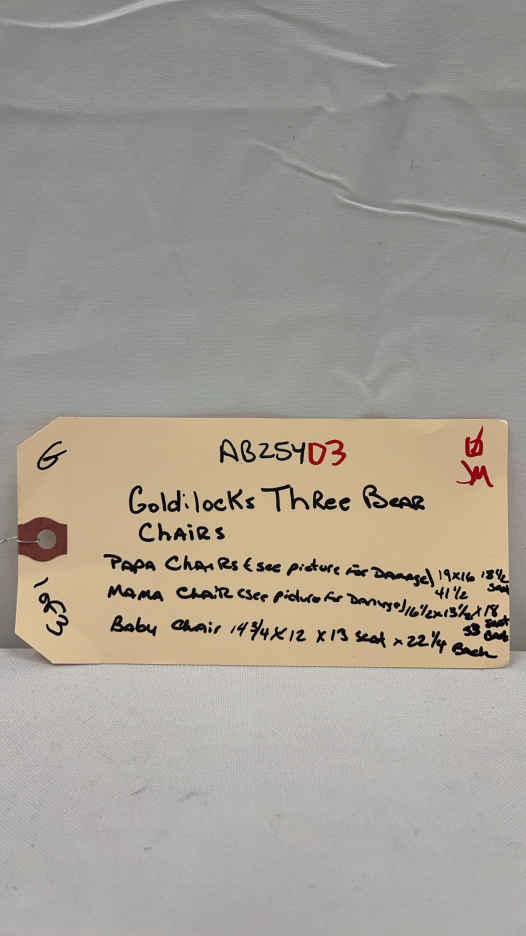 G
AB254D3
JM
Goldilocks Three Bear
Chairs
Papa Chairs (see picture for Damage) 19x16 18 1/2 Seat
41 1/2
Mama Chair (see picture for Damage) 16 1/2 x 13 1/2 x 18 Seat
38 Back
Baby Chair 14 3/4 x 12 x 13 seat x 22 1/4 Back
1 of 3